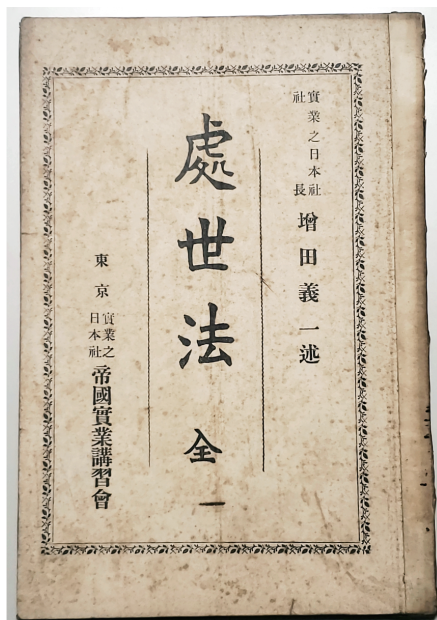 實業之日本社
社長
增田義一述
處世法 全一
東京
實業之
日本社
帝國實業講習會